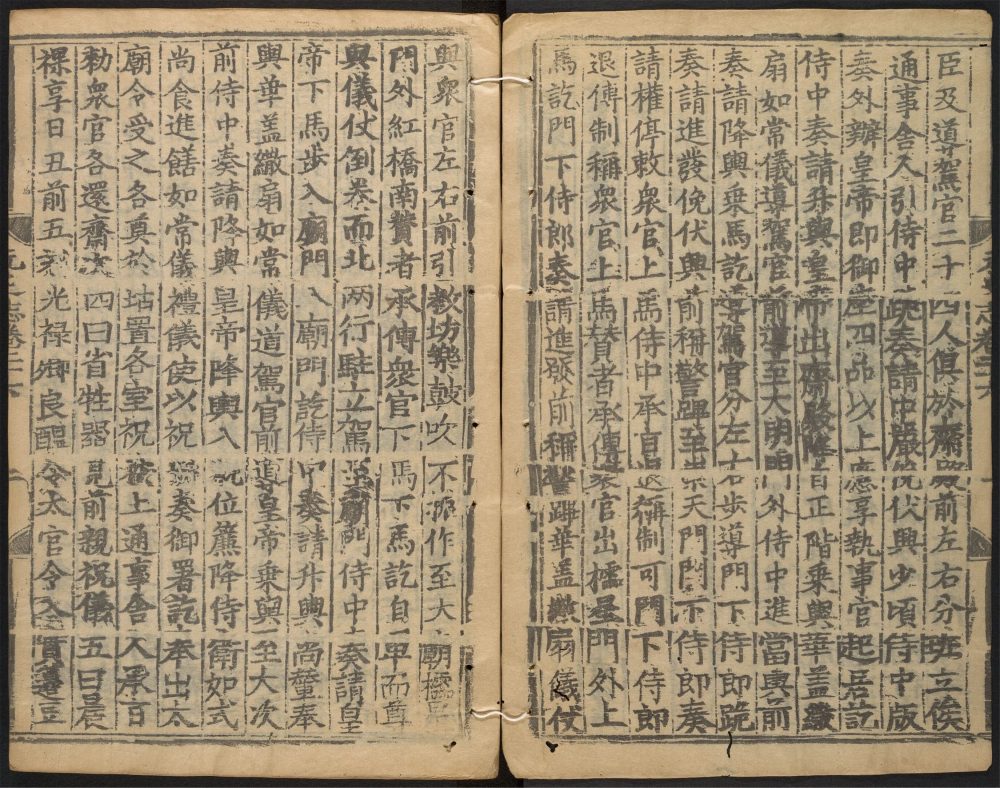 臣及導駕官二十四人俱於齋殿前左右分班立俟
通事舍人引侍中跪奏請中嚴俛伏興少頃侍中版
奏外辦皇帝即御座四品以上應享執事官起居訖
侍中奏請升輿皇帝出齋殿降自正階乘輿華蓋繖
扇如常儀導駕官前導至大明門外侍中進當輿前
奏請降輿乘馬訖導駕官分左右步導門下侍即跪
奏請進發俛伏興前稱警蹕至崇天門門下侍即奏
請權停敕衆官上馬侍中承旨退稱制可門下侍郎
退傳制稱衆官上馬贊者承傳衆官出櫺星門外上
馬訖門下侍郎奏請進發前稱警蹕華蓋繖扇儀仗
與衆官左右前引教坊樂鼓吹不振作至大廟櫺星
門外紅橋南贊者承傳衆官下馬下馬訖自卑而尊
與儀仗倒卷而北兩行駐立駕至廟門侍中奏請皇
帝下馬步入廟門入廟門訖侍中奏請升輿尚輦奉
輿華盖繖扇如常儀道駕官前導皇帝乘輿至大次
前侍中奏請降輿皇帝降輿入就位簾降侍衛如式
尚食進饍如常儀禮儀使以祝冊奏御署訖奉出太
廟令受之各奠於坫置各室祝案上通事舍人承旨
勑衆官各還齋次四曰省牲器見前親祝儀五曰晨
祼享日丑前五刻光祿卿良醞令太官令入實籩豆